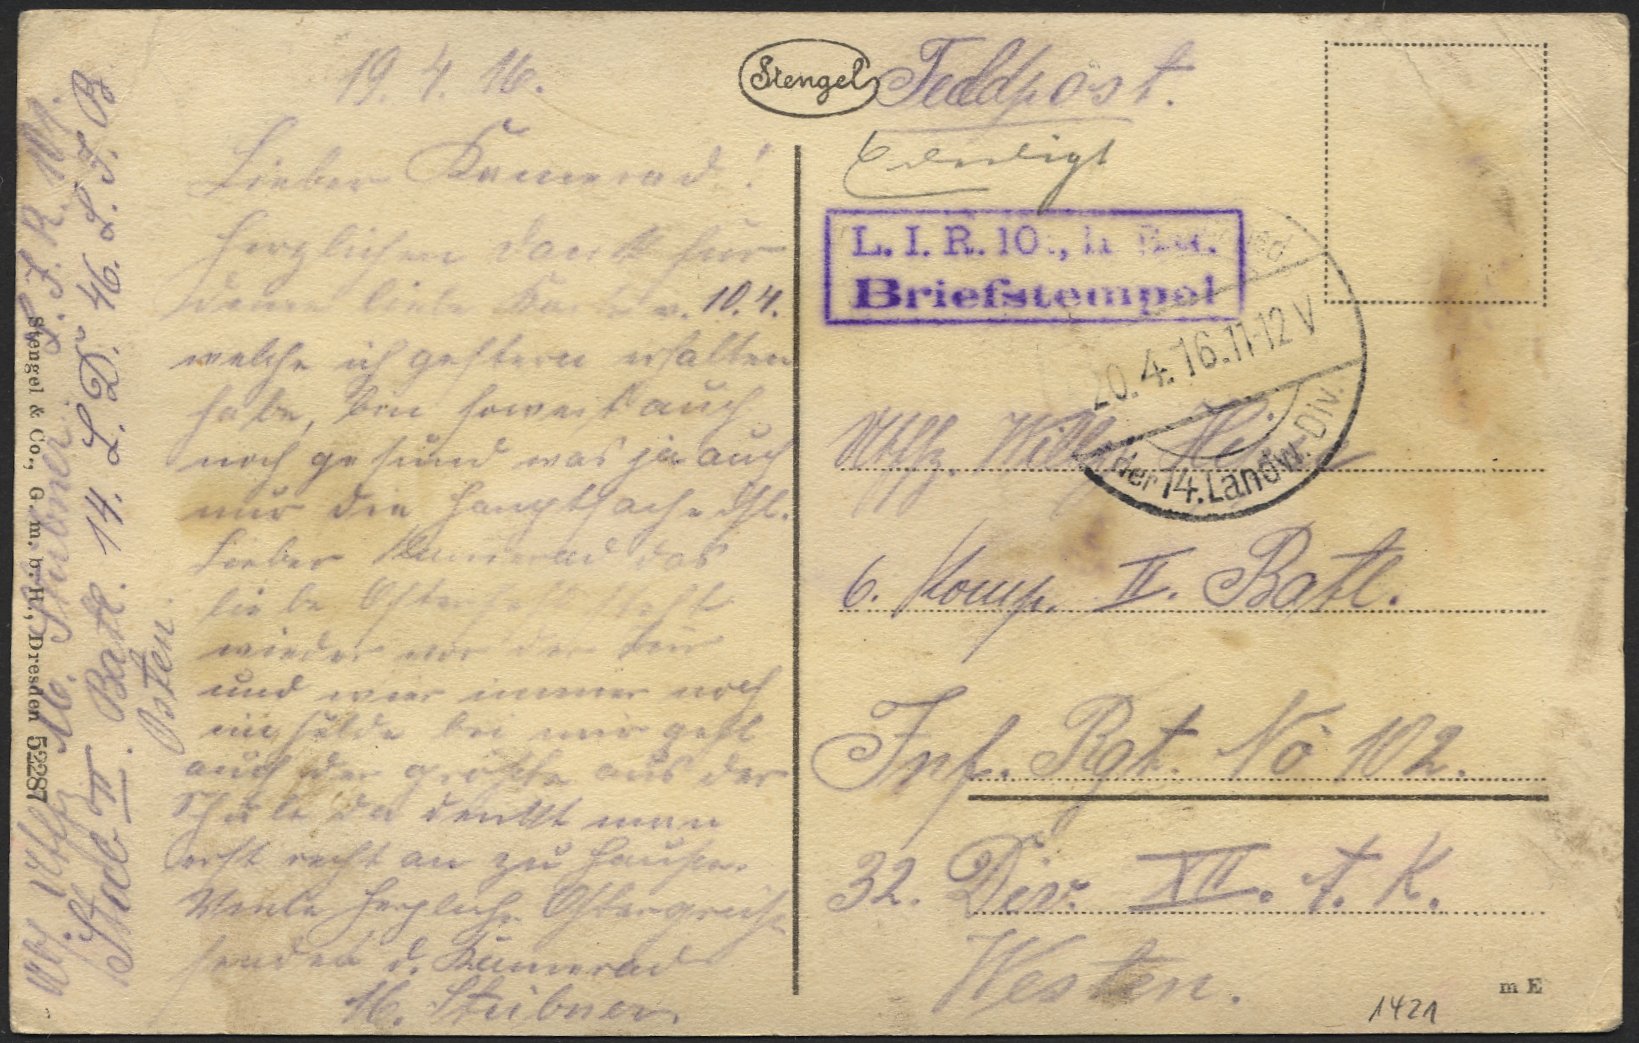 19. 4. 16.
Lieber Kamerad!
Herzlichen Dank für
deine liebe Karte v. 10. 4.
welche ich gestern erhalten
habe, bin soweit auch
noch gesund was ja auch
nur die Hauptsache ist.
Lieber Kamerad das
liebe Osterfest steht
wieder vor der Tür
und wier immer noch
im Felde bei mir geht
auch der größte aus der
Schule da denkt man
erst recht an zu Hause.
Viele herzliche Ostergrüße
sendet d. Kamerad
M. Stübner
Abs. Uffz. M. Stübner. L. I. R. 101.
Stab II. Batl. 14. L. D. 46. L. I. B.
Osten
Stengel & Co., G. m. b. H., Dresden 52287
Stengel
Feldpost.
Erledigt
L. I. R. 10 , II Bat.
Briefstempel
20. 4. 16. 11-12 V
der 14. Landw.-Div.
Uffz. Willy
6. Komp. II. Batl.
Inf. Rgt. No 102.
32. Div. XII. A. K.
Westen.
m E
1421